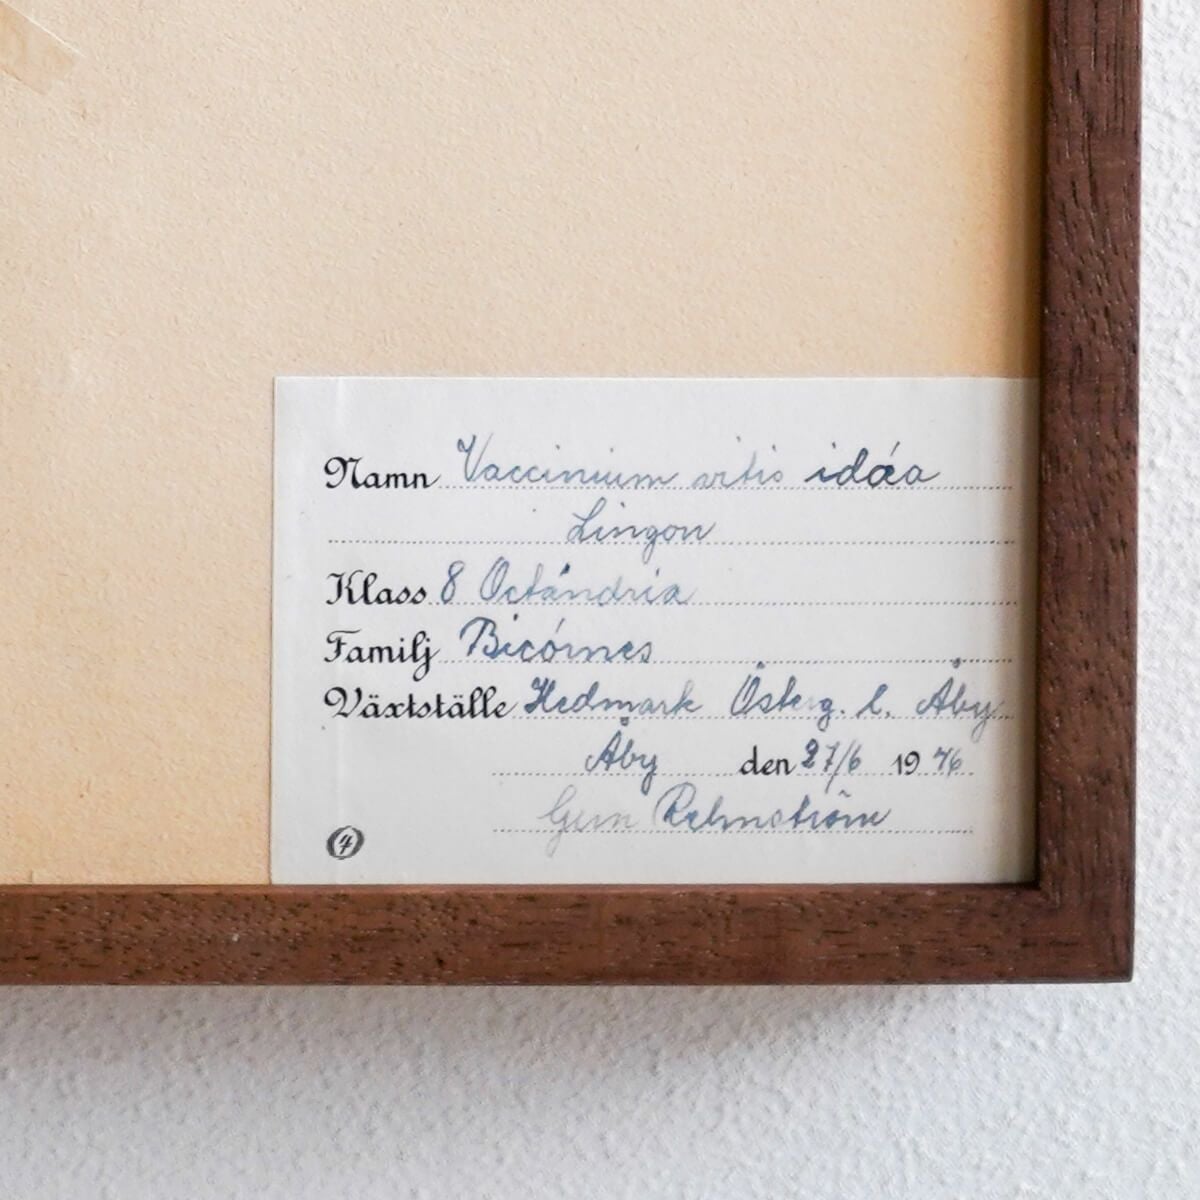 Namn Vaccinium vitis idáa
Lingon
Klass 8 Octándria
Familj Bicórnes
Växtställe Hedmark Österg. l. Åby
Åby den 27/6 1946
4